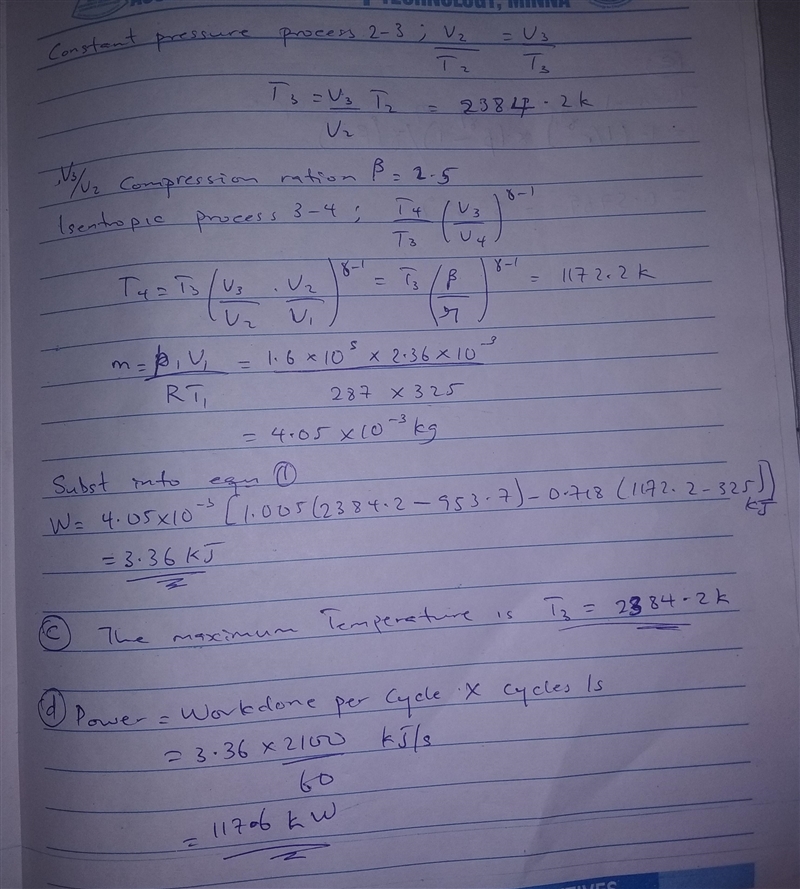 TECHNOLOGY, MINNA
Constant pressure process 2-3 ; V₂/T₂ = V₃/T₃
T₃ = V₃/V₂ T₂ = 2384.2k
V₃/V₂ Compression ration β = 2.5
Isentropic process 3-4 ; T₄/T₃ (V₃/V₄)^γ-1
T₄ = T₃ (V₃/V₂ . V₂/V₁)^γ-1 = T₃ (β/r)^γ-1 = 1172.2k
m = p₁V₁/RT₁ = 1.6 × 10⁵ × 2.36 × 10⁻³/287 × 325
= 4.05 × 10⁻³ kg
Subst into eqn ①
W = 4.05×10⁻³ [1.005(2384.2 - 953.7) - 0.718 (1172.2 - 325)] kJ
= 3.36 KJ
ⓒ The maximum Temperature is T₃ = 2384.2k
ⓓ Power = Workdone per Cycle × cycles/s
= 3.36 × 2100/60 kJ/s
= 117.6 kW